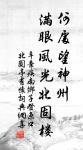 何處望神州
滿眼風光北固樓
辛棄疾南鄉子登京口
北固亭有懷詞典網